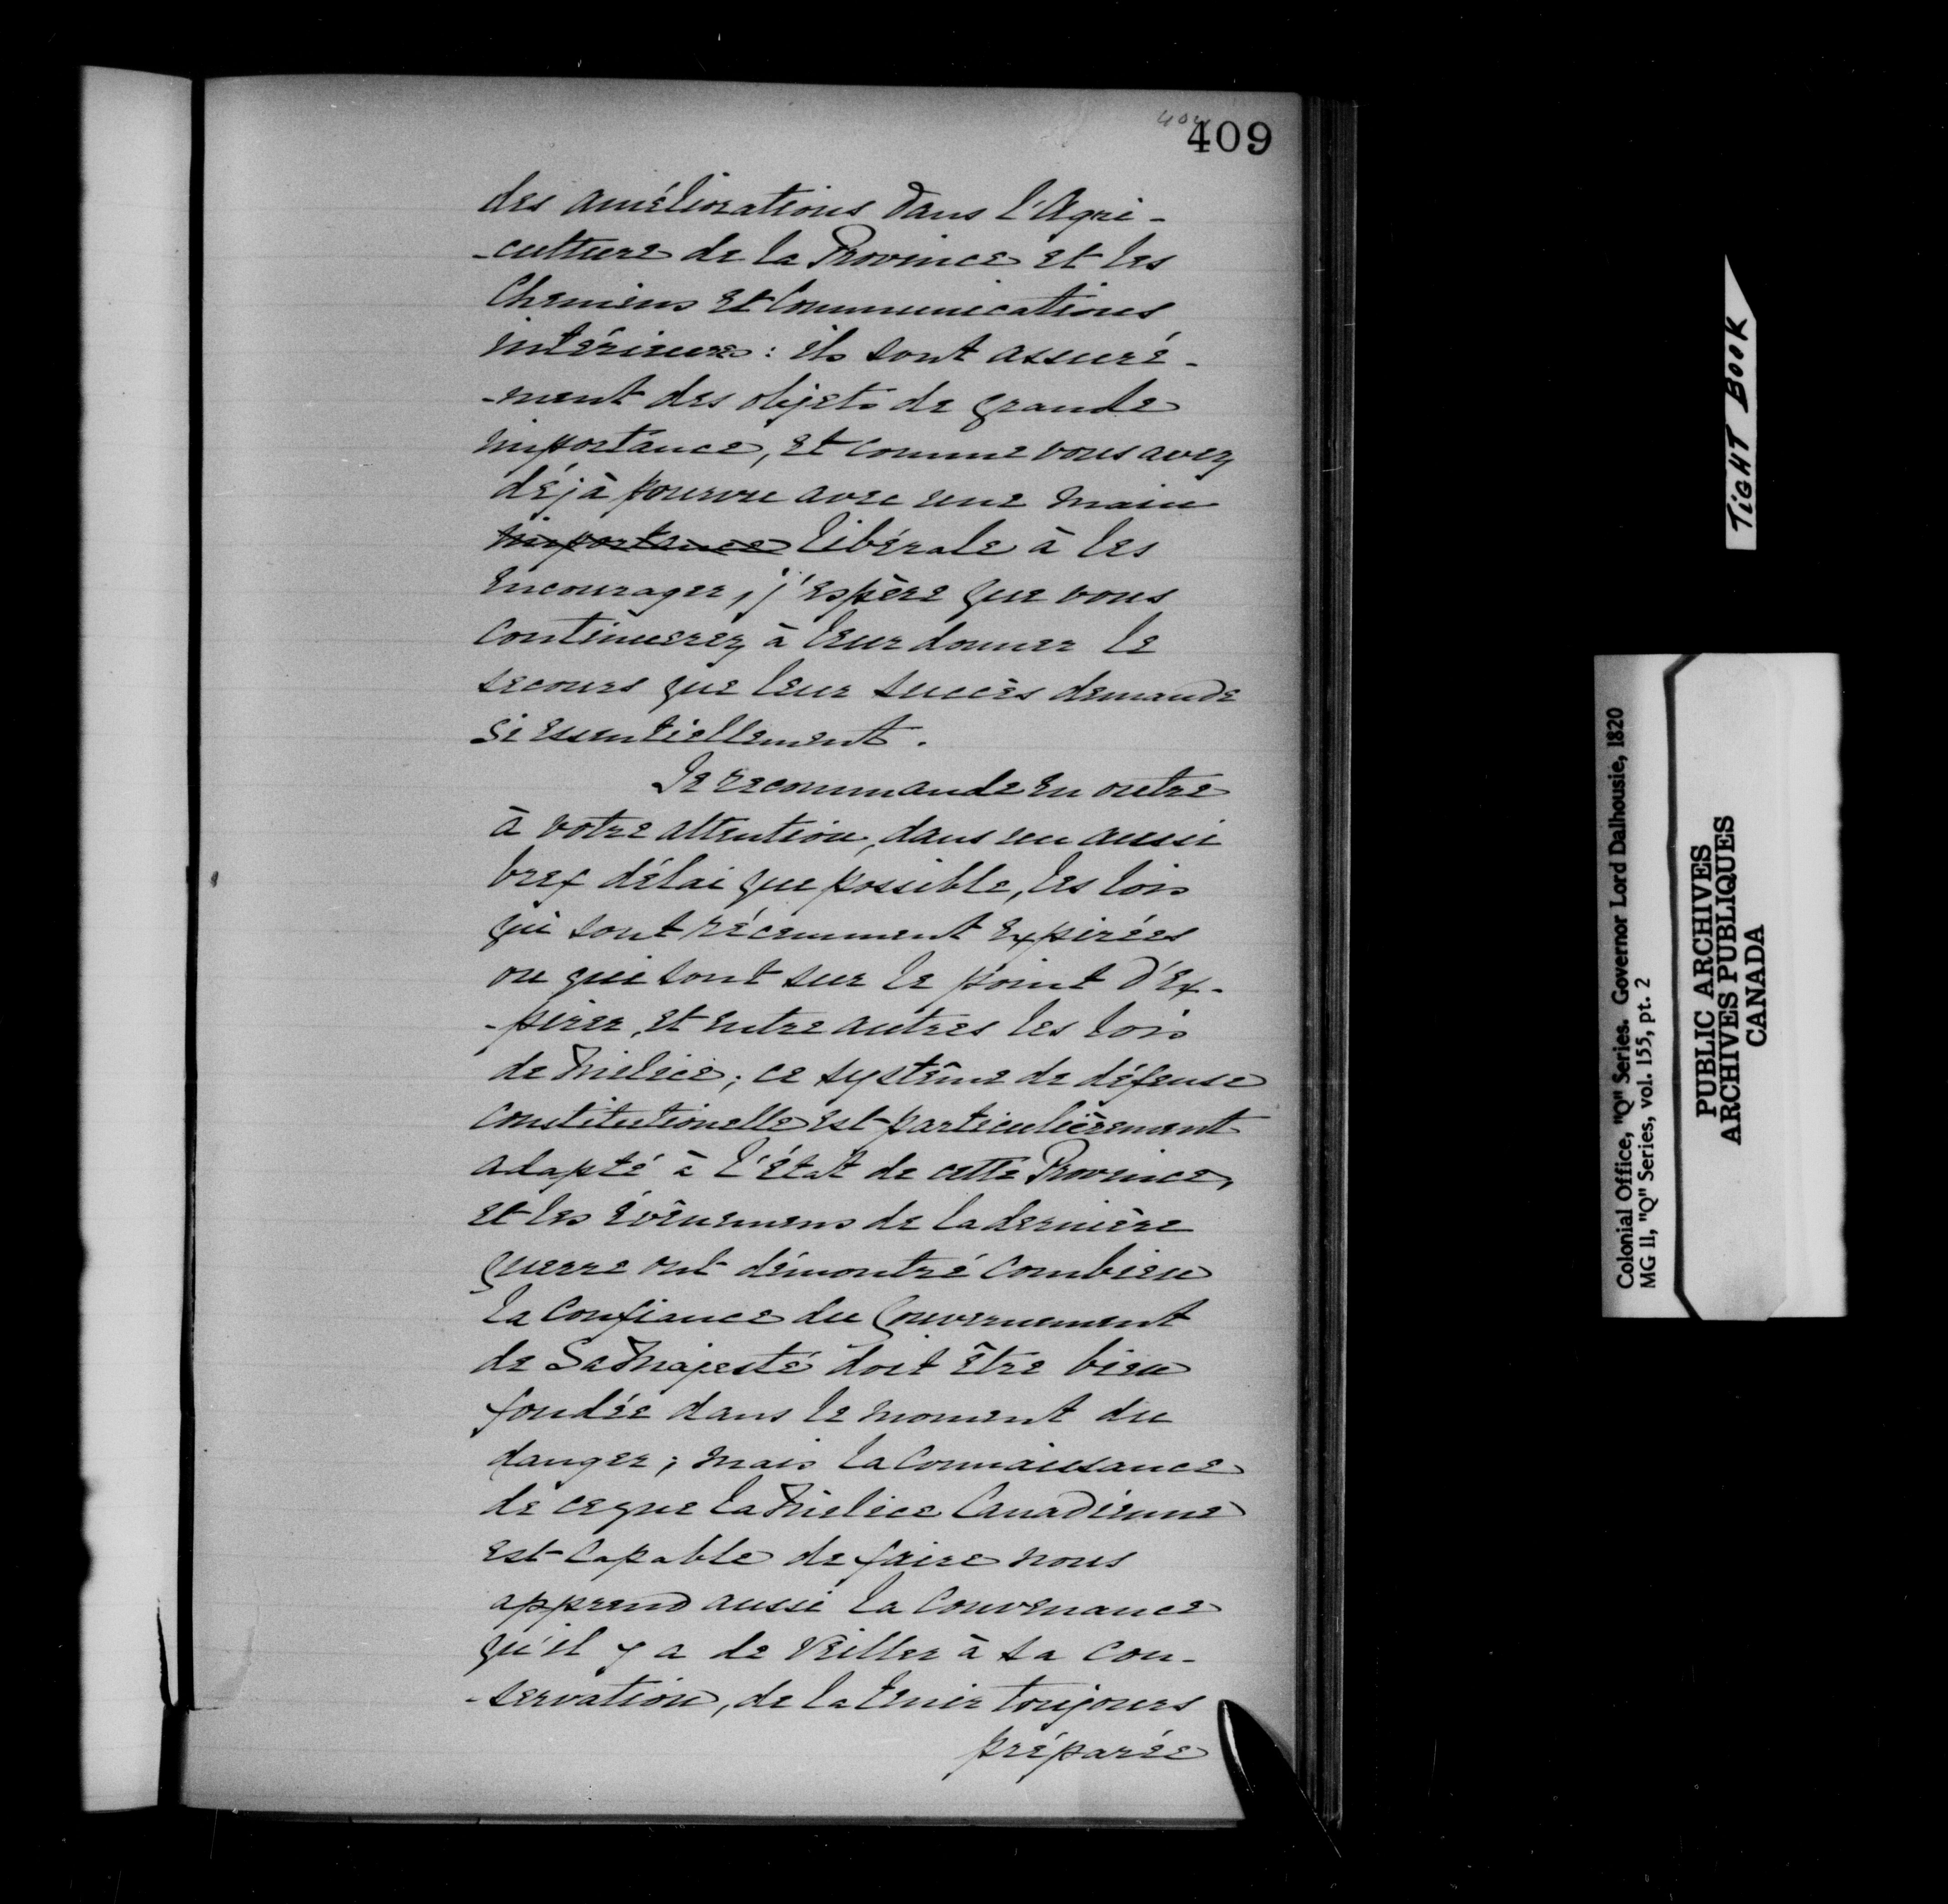 409
des améliorations dans l'Agri-
-culture de la Province et les
Chemins et Communications
intérieures: ils sont assuré-
-ment des objets de grande
importance, et comme vous avez
déjà pourvu avec une main
importance libérale à les
encourager, j'espère que vous
continuerez à leur donner le
secours que leur succès demande
si essentiellement.
Je recommande en outre
à votre attention, dans un aussi
bref délai que possible, les lois
qui sont récemment expirées
ou qui sont sur le point d'ex-
-pirer, et entre autres les lois
de Milice; ce système de défense
constitutionelle est particulièrement
adapté à l'état de cette Province,
et les évênemens de la dernière
guerre ont démontré combien
la Confiance du Gouvernement
de Sa Majesté doit être bien
fondée dans le moment du
danger; mais la Connaissance
de ce que la Milice Canadienne
est capable de faire nous
apprend aussi la Convenance
qu'il y a de veiller à sa con-
-servation, de la tenir toujours
préparée
TIGHT BOOK
Colonial Office, "Q" Series. Governor Lord Dalhousie, 1820
MG 11, "Q" Series, vol. 155, pt. 2
PUBLIC ARCHIVES
ARCHIVES PUBLIQUES
CANADA